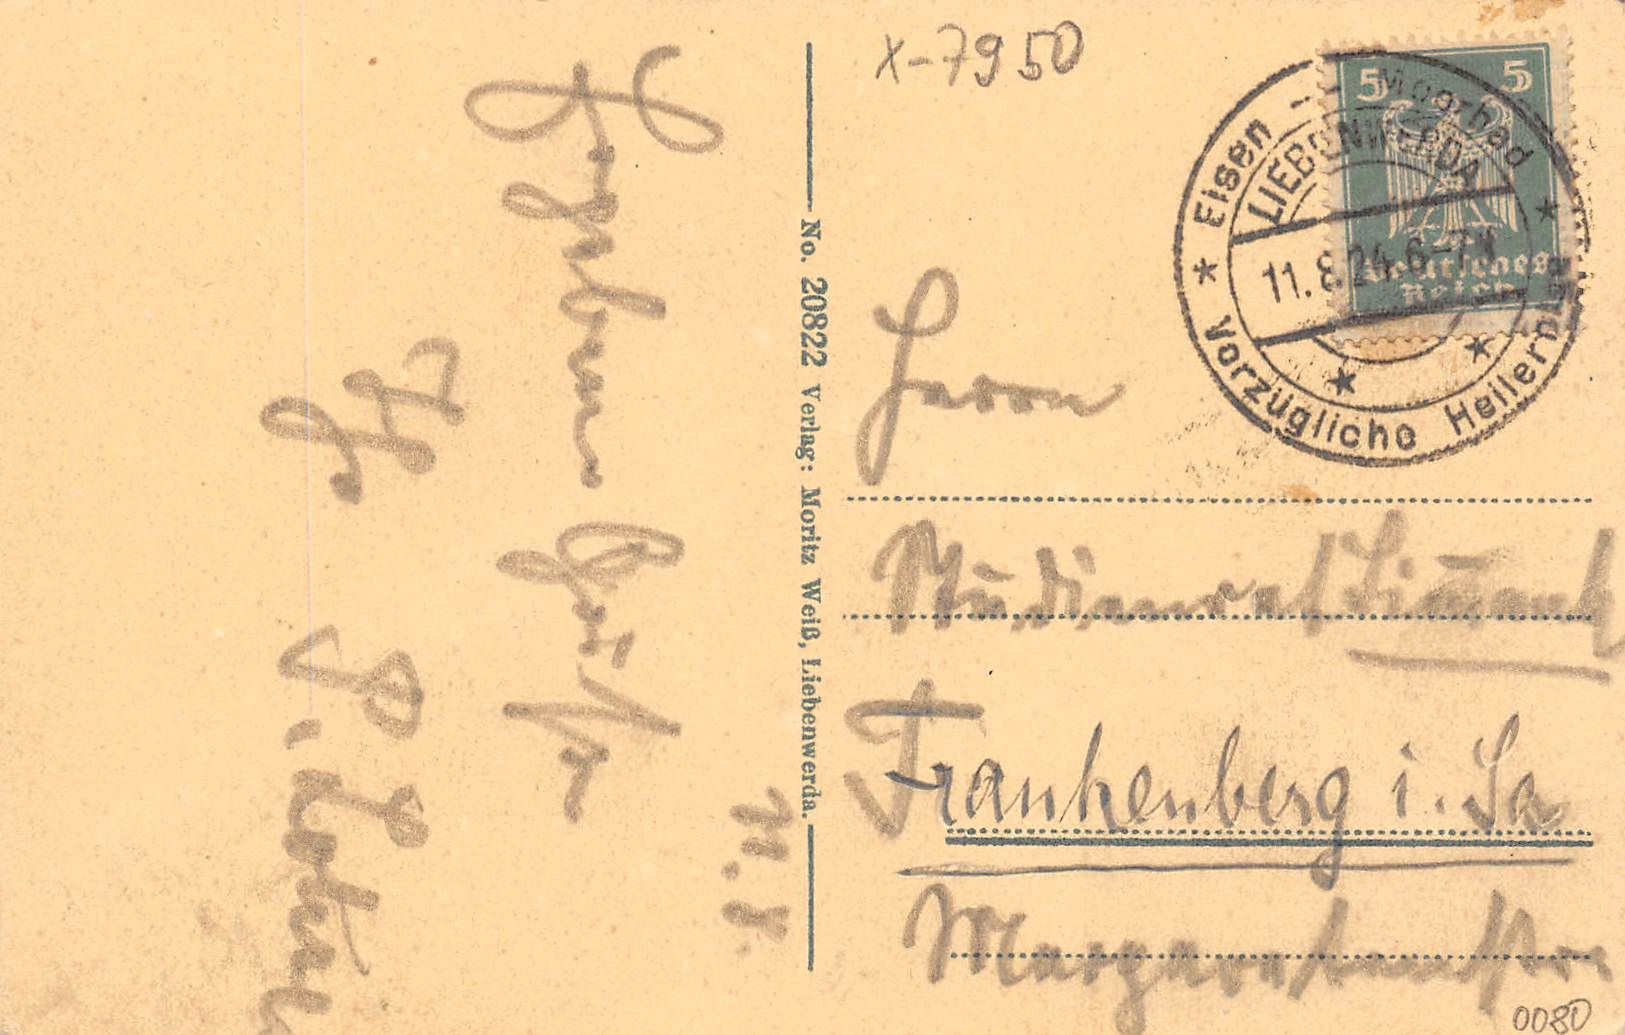 x-7950
5 5
Deutsches
Reich
Eisen - Moorbad
LIEBENWERDA
11.8.24.6-7N
Vorzügliche Heilerfolge
No. 20822 Verlag: Moritz Weiß, Liebenwerda.
11.8.
Ergebenen Gruß
Ihr
Herrn
Studienrat
Frankenberg i. Sa
Margaretenstr
0080